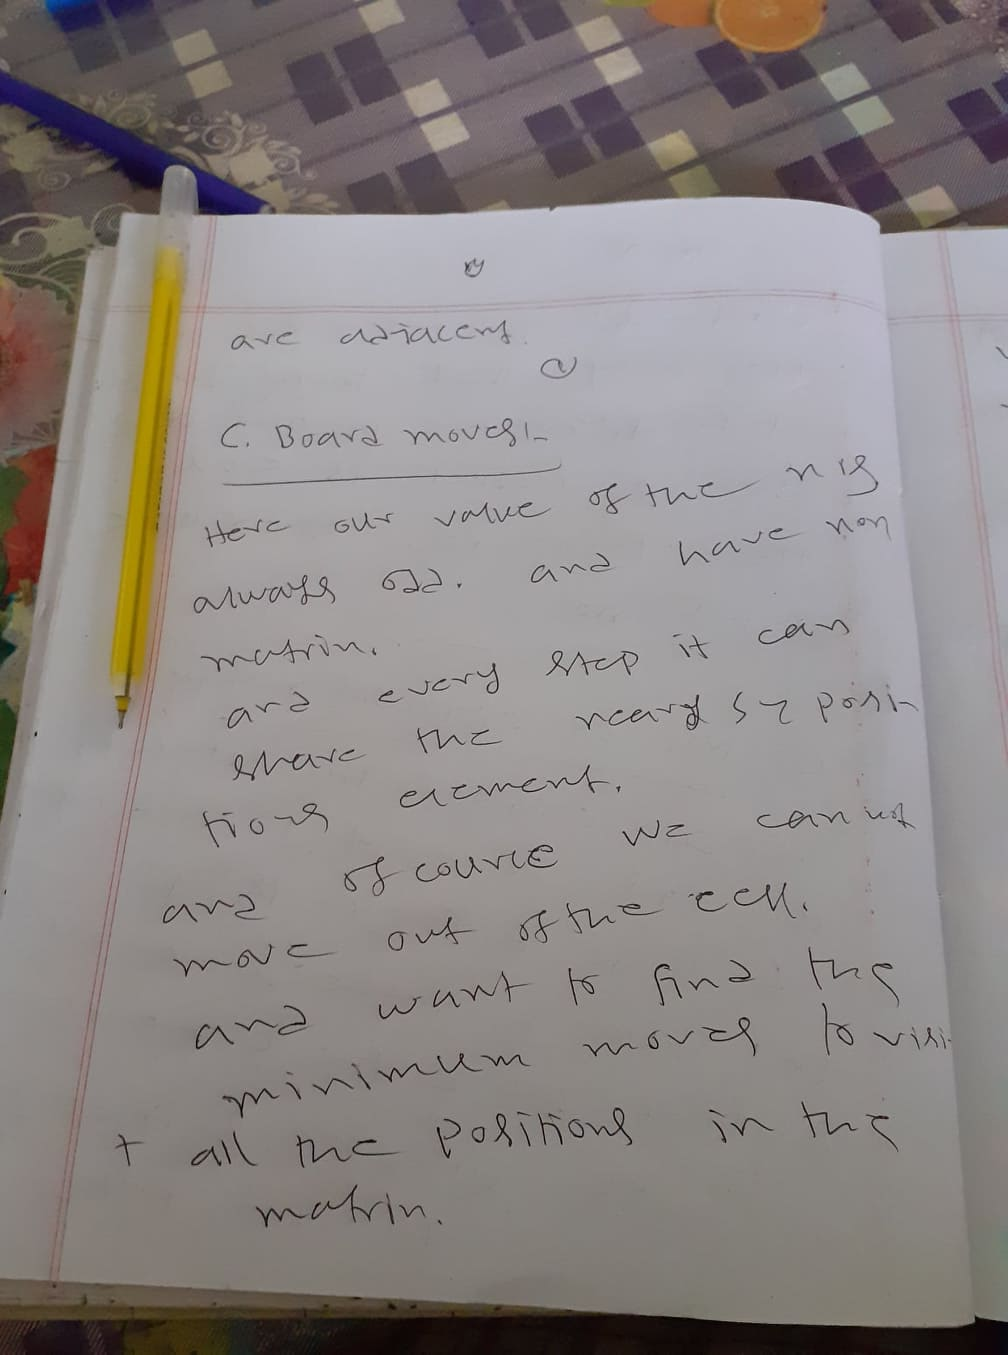 are adjacent.
C. Board moves:-
Here our value of the n is
always odd. and have nxn
matrix.
and every step it can
share the
tions element.
and of course we can not
move out of the cell.
and want to find the
minimum moves to visi
t all the positions in the
matrix.